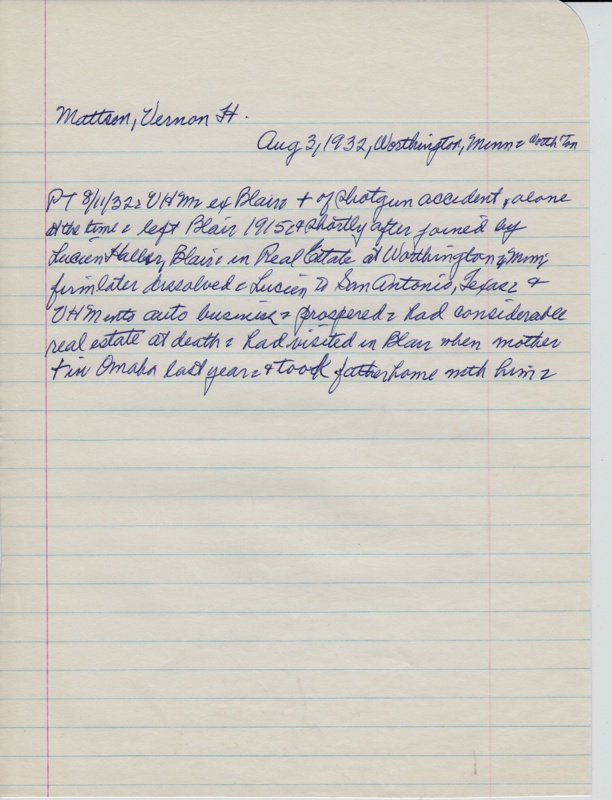 Mattson, Vernon H.
Aug 3, 1932, Worthington, Minn
PT 8/11/32 VHM ex Blair + of shotgun accident, alone
at the time left Blair 1915 & shortly after joined by
Lucien Haller, Blair in Real Estate at Worthington, Minn;
firm later dissolved Lucien to San Antonio, Texas &
VHM into auto business prospered had considerable
real estate at death had visited in Blair when mother
+ in Omaha last year & took father home with him